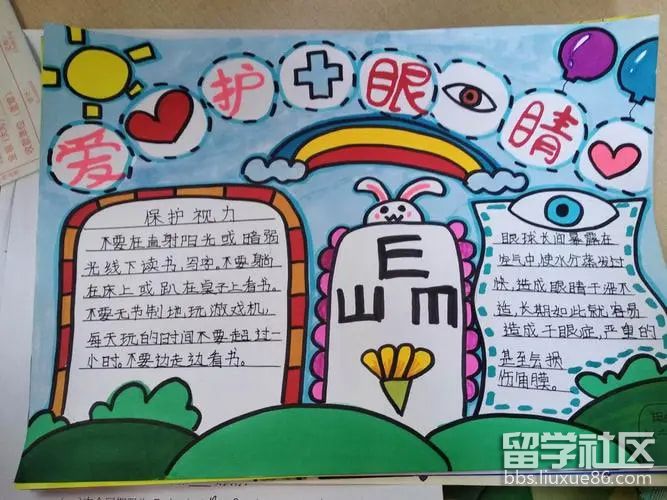 爱护眼睛
保护视力
不要在直射阳光或暗弱
光线下读书、写字。不要躺
在床上或趴在桌子上看书。
不要无节制地玩游戏机，
每天玩的时间不要超过一
小时。不要边走边看书。
E
E
M
眼球长间暴露在
空气中，使水分蒸发过
快，造成眼睛干涩不
适，长期如此就容易
造成干眼症，严重的
甚至会损
伤角膜。
留学社区
bbs.liuxue86.com